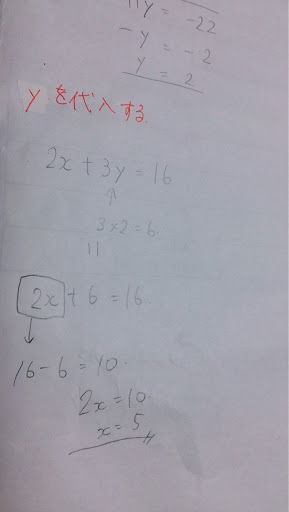 11y = -22
-y = -2
y = 2
yを代入する
2x + 3y = 16
↑
3×2=6
11
2x + 6 = 16
↓
16-6=10
2x=10
x=5